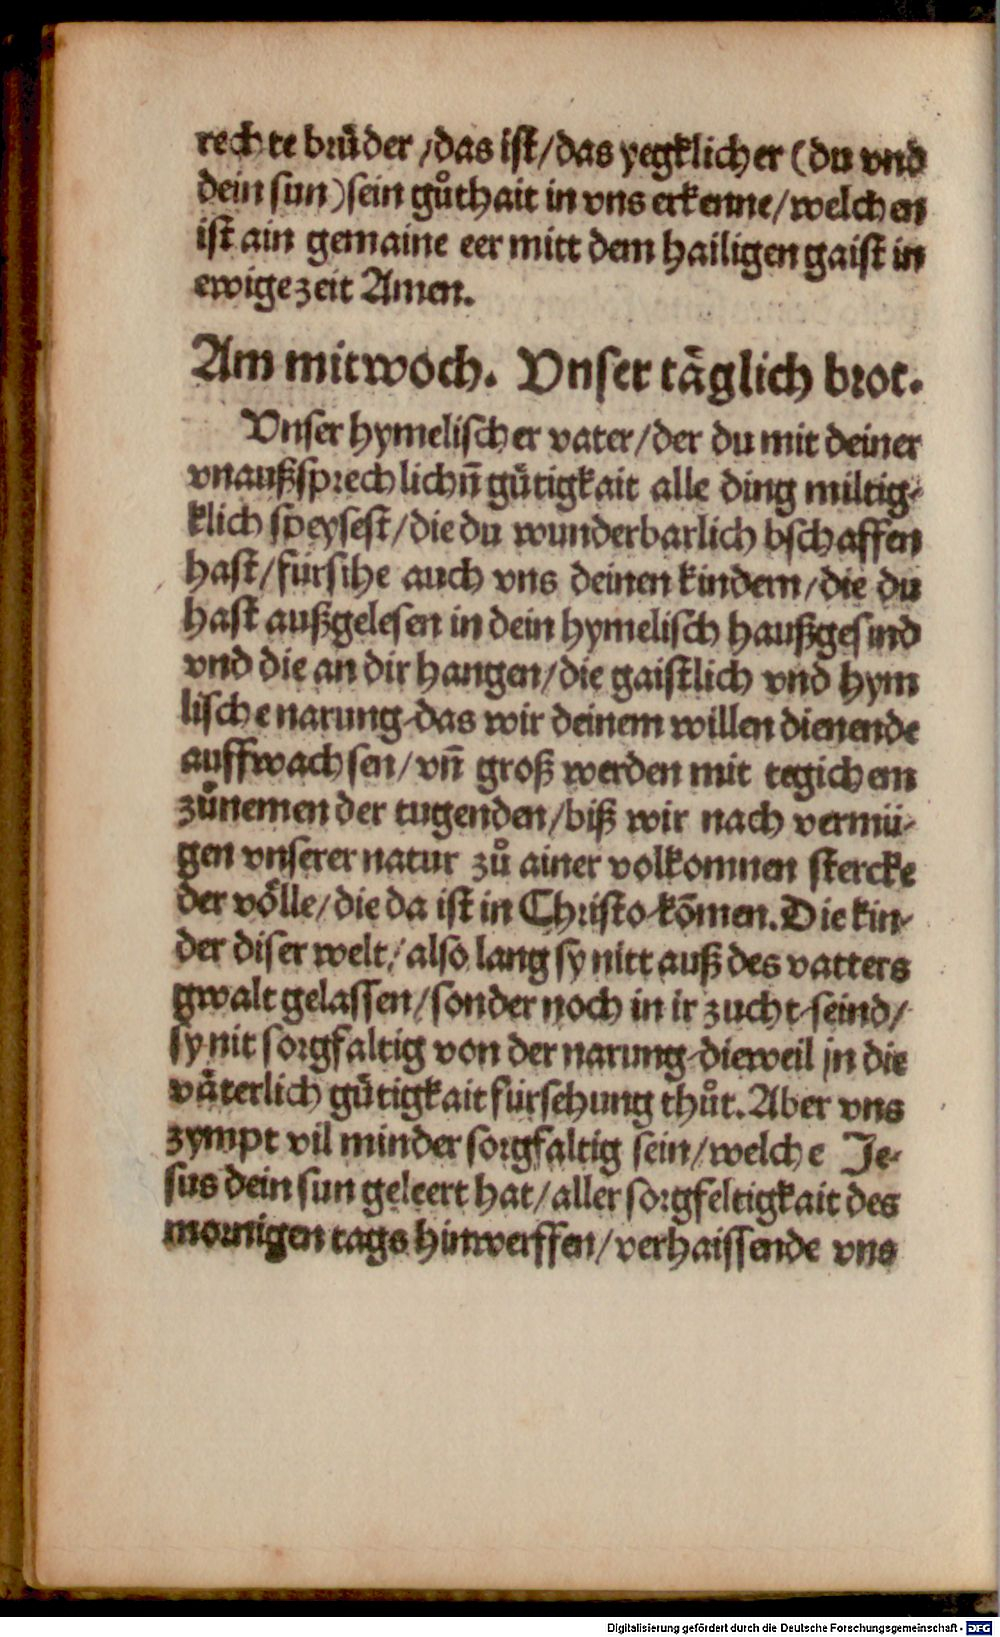 rechte brůder /das ist/das yegklicher (du vnd
dein sun) sein gůthait in vns erkenne/welchen
ist ain gemaine eer mitt dem hailigen gaist in
ewige zeit Amen.
Am mitwoch. Vnser täglich brot.
Vnser hymelischer vater/der du mit deiner
vnaußsprechlichn̄ gütigkait alle ding miltig-
klich speysest/die du wunderbarlich bschaffen
hast/fürsihe auch vns deinen kindern/die du
hast außgelesen in dein hymelisch haußgesind
vnd die an dir hangen/die gaistlich vnd hym
lische narung-das wir deinem willen dienende
auffwachsen/vn̄ groß werden mit tegichem
zůnemen der tugenden/biß wir nach vermü-
gen vnserer natur zů ainer volkomnen stercke
der völle/die da ist in Christo-kōmen. Die kin-
der diser welt/also lang sy nitt auß des vatters
gwalt gelassen/sonder noch in ir zucht-seind/
sy nit sorgfaltig von der narung-dieweil jn die
väterlich gütigkait fürsehung thůt. Aber vns
zympt vil minder sorgfaltig sein/welche Je-
sus dein sun geleert hat/aller sorgfeltigkait des
mornigen tags hinwerffen/verhaissende vns
Digitalisierung gefördert durch die Deutsche Forschungsgemeinschaft - DFG